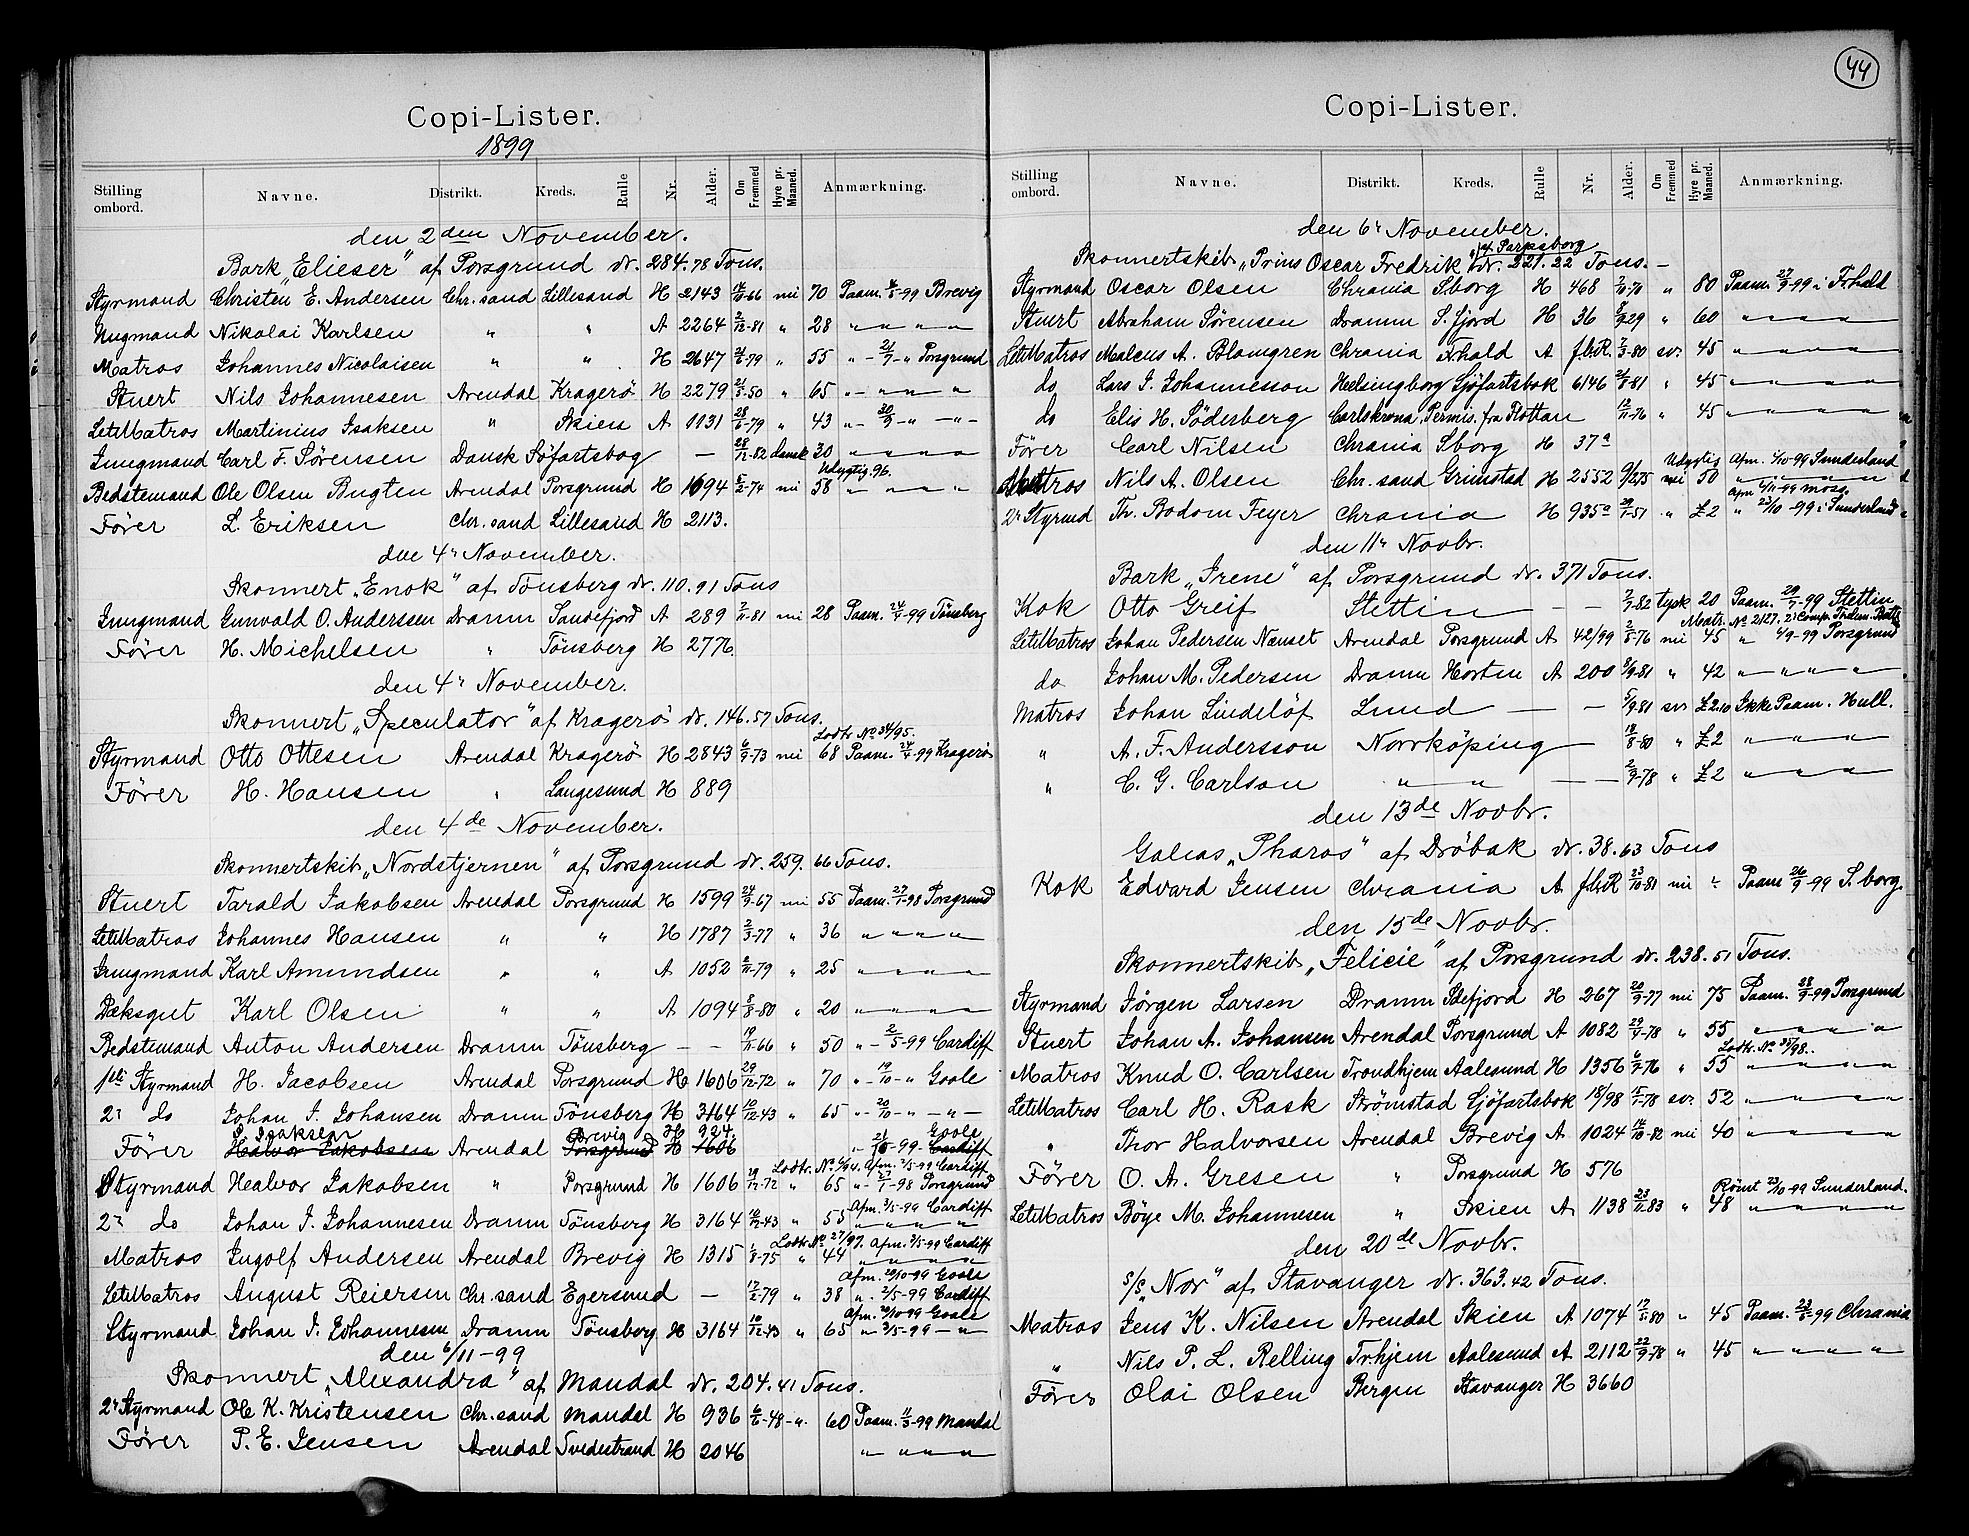 Copi-Lister.
1899
Stilling ombord. Navne. Distrikt. Kreds. Rulle Nr. Alder. Om Fremmed Hyre pr. Maaned. Anmærkning.
den 2den November.
Bark „Elieser" af Porsgrund dr. 284.78 Tons.
Styrmand Christen E. Andersen Chr.sand Lillesand H 2143 -66 mi 70 Paam. -99 Brevig
Nikolai Karlsen " " A 2264 2/12-81 " 28 " " " "
Matros Johannes Nicolaisen " " H 2647 -79 " 55 " - 21/7 - " Porsgrund
Stuert Nils Johannesen Arendal Kragerö H 2279 21/3-50 " 65 " - " " "
LetMatros Martinius Isaksen " Skien A 1131 28/6-79 " 43 " - - " - " -
Jungmand Carl F. Sørensen Dansk Söfartsbog - 28/12-82 dansk 30 " " " "
Udygtig 96.
Bedstemand Ole Olsen Bugten Arendal Porsgrund H 1694 5/2-74 mi 58 " " " "
Fører L. Eriksen Chr.sand Lillesand H 2113.
den 4r November.
Skonnert „Enok" af Tönsberg dr. 110.91 Tons
Jungmand Gunvald O. Anderssen Dramn Sandefjord A 289 2/11-81 mi 28 Paam. 24/4-99 Tönsberg
Fører H. Michelsen " Tönsberg H 2776.
den 4r November.
Skonnert „Speculator" af Kragerö dr. 146.57 Tons.
Lodtr. No 34/95.
Styrmand Otto Ottesen Arendal Kragerö H 2843 6/9-73 mi 68 Paam. 24/4-99 Kragerö
Fører H. Hansen " Langesund H 889
den 4de November.
Skonnertskib „Nordstjernen" af Porsgrund dr. 259.66 Tons.
Stuert Tarald Jakobsen Arendal Porsgrund H 1599 24/9-67 mi 55 Paam. 27/1-98 Porsgrund
LetMatros Johannes Hansen " " H 1787 2/3-77 " 36 " " " "
Jungmand Karl Amundsen " " A 1052 2/11-79 " 25 " " " "
Dæksgut Karl Olsen " " A 1094 8/8-80 " 20 " " " "
Bedstemand Anton Andersen Dramn Tönsberg - - 19/11-66 " 50 " - 2/5-99 Cardiff
1ste Styrmand H. Jacobsen Arendal Porsgrund H 1606 29/12-72 " 70 " - 19/10 - " Goole
2r do Johan J. Johansen Dramn Tönsberg H 3164 10/12-43 " 65 " - 20/10 - " - " -
Isaksen Brevig H 924. Goole
Fører Halvor Jakobsen Arendal Porsgrund H 1606 " -99 - Cardiff
Lodtr. No 6/94. Afm. 2/5-99 Cardiff
Styrmand Halvor Jakobsen " Porsgrund H 1606 29/12-72 " 65 " - 27/1-98 Porsgrund
Afm. 3/5-99 Cardiff
2r do Johan J. Johannesen Dramn Tönsberg H 3164 10/12-43 " 55 " " " "
Lodtr. No 27/97. Afm. 3/5-99 Cardiff
Matros Ingolf Andersen Arendal Brevig H 1315 1/8-75 " 44 " " " "
Afm. 20/10-99 Goole
LetMatros August Reiersen Chr.sand Egersund - 17/2-79 " 38 " . 2/5-99 Cardiff
Afm. 20/10-99 Goole
Styrmand Johan J. Johannesen Dramn Tönsberg H 3164 10/12-43 " 65 " 3/5-99 - " -
den 6/11-99
Skonnert „Alexandra" af Mandal dr. 204.41 Tons.
2r Styrmand Ole K. Kristensen Chr.sand Mandal H 936 6/6-48 - " 60 Paam. 11/3-99 Mandal
Fører P. E. Jensen Arendal Tvedestrand H 2046 " " " "
44
Copi-Lister.
Stilling ombord. Navne. Distrikt. Kreds. Rulle Nr. Alder. Om Fremmed Hyre pr. Maaned. Anmærkning.
den 6r November.
af Sarpsborg
Skonnertskib „Prins Oscar Fredrik" dr. 221.22 Tons. -
Styrmand Oscar Olsen Chrania Sborg H 468 -70 " 80 Paam. 27/9-99 i Frhald
Stuert Abraham Sørensen Dramn S. fjord H 36 -29 " 60 " " " "
LetMatros Malcus A. Blomgren Chrania Frhald A fhR. 7/3-80 sv. 45 " " " "
do Lars J. Johannesson Helsingborg Sjöfartsbok 6146 -81 " 45 " " " "
do Elis H. Söderberg Carlskrona Permis. fra Flottan 12/11-76 " 45 " " " "
Fører Carl Nilsen Chrania Sborg H 37a
Udygtig Afm. 4/10-99 Sunderland
Matros Nils A. Olsen Chr.sand Grimstad H 2552 9/2 75 mi 50 " " " "
Afm 6/11-99 Moss.
2r Styrmd Th. Bodom Feyer Chrania H 935a -51 " £2 " 23/10-99 i Sunderland
den 11r Novbr.
Bark „Irene" af Porsgrund dr. 371 Tons.
Kok Otto Greif Stettin - - 2/7-82 tysk 20 Paam. 29/7-99 Stettin
Matr. No 2127. 2' Comp. Batt
LetMatros Johan Pedersen Nænset Arendal Porsgrund A 42/99 2/8-76 mi 45 " 4/9-99 Porsgrund
do Johan M. Pedersen Dramn Horten A 200 8/9-81 " 42 " " " "
Matros Johan Lindelöf Lund - - 5/9-81 sv. £2.10 Ikke Paam. Hull.
" A. F. Andersson Norrköping - 12/8-80 " £2 " " " "
" C. G. Carlson " " - - 2/9-78 " £2 " " " "
den 13de Novbr.
Galeas „Pharos" af Dröbak dr. 38.63 Tons
Kok Edvard Jensen Chrania A fhR 23/10-81 mi " Paam 26/9-99 S.borg.
den 15de Novbr.
Skonnertskib „Felicie" af Porsgrund dr. 238.51 Tons.
Styrmand Jørgen Larsen Dramn Sdefjord H 267 20/9-77 mi 75 Paam. 28/9-99 Porsgrund
Stuert Johan A. Johansen Arendal Porsgrund A 1082 29/9-78 " 55 " " " "
Lodtr. No 35/98.
Matros Knud O. Carlsen Trondhjem Aalesund H 1356 6/7-76 " 55 " " " "
LetMatros Carl H. Rask Strømstad Sjöfartsbok 18/98 15/1-78 sv. 52 " " " "
" Thor Halvorsen Arendal Brevig A 1024 12/10-82 mi 40 " " " "
Fører O. A. Gresen " Porsgrund H 576
Rømt 23/10-99 Sunderland.
LetMatros Böye M. Johannesen " Skien A 1138 23/11-83 " 48 " " " "
den 20de Novbr.
S/S „Nor" af Stavanger dr. 363.42 Tons.
Matros Jens K. Nilsen Arendal Skien A 1074 17/5-80 " 45 Paam. 23/6-99 Chrania
" Nils P. L. Relling Trhjem Aalesund A 2112 22/9-78 " 45 " " " "
Fører Olai Olsen Bergen Stavanger H 3660